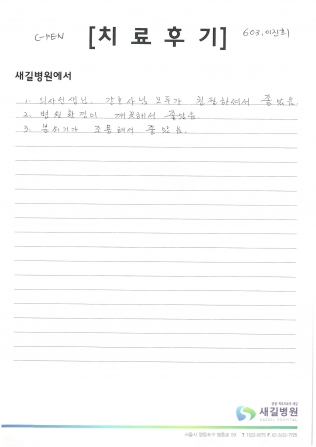 C-PEN
[치 료 후 기]
603, 이진희
새길병원에서
1. 의사선생님, 간호사님 모두가 친절하셔서 좋았음.
2. 병원환경이 깨끗해서 좋았음
3. 분위기가 조용해서 좋았음.
새길병원
SAEGIL HOSPITAL